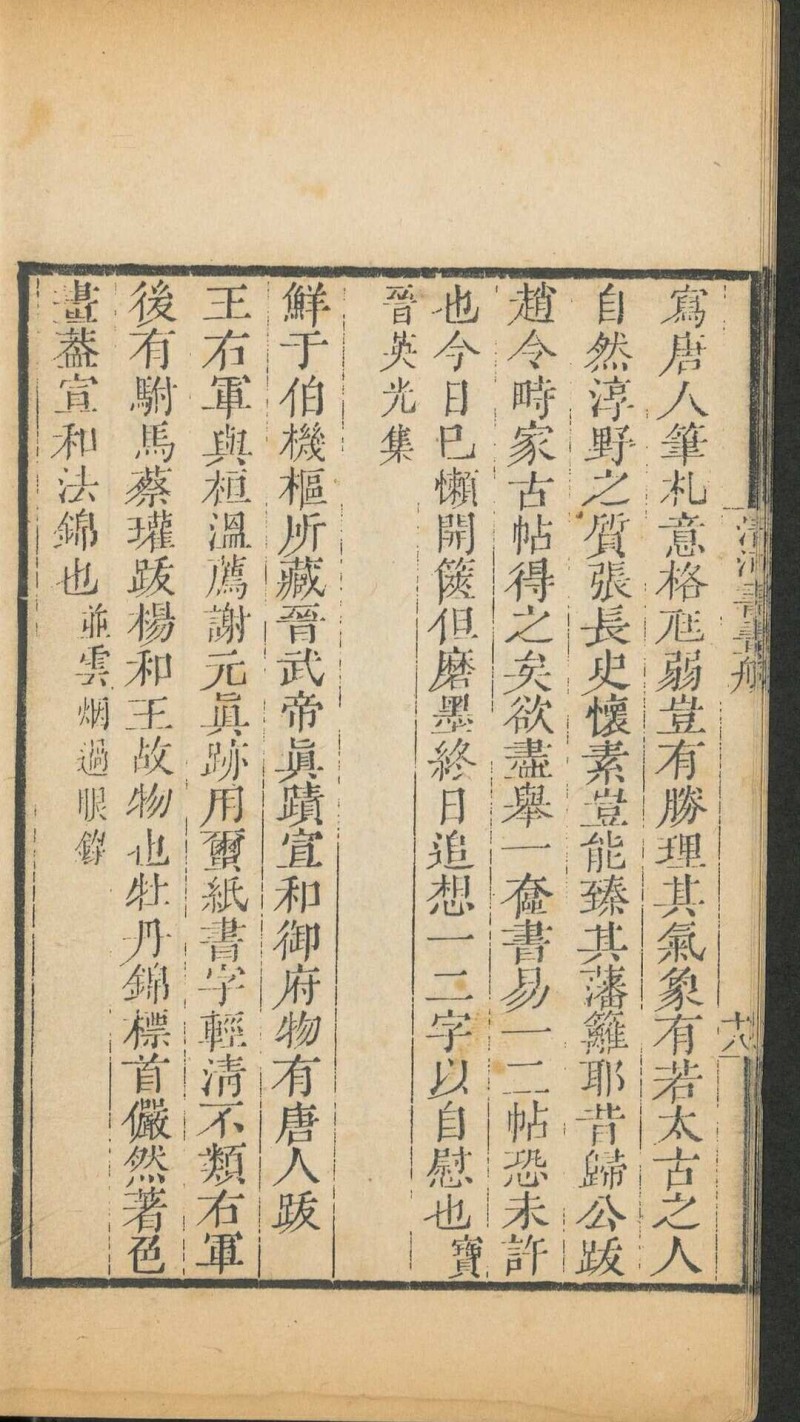 寫唐人筆札意格尫弱豈有勝理其氣象有若太古之人
自然淳野之質張長史懷素豈能臻其藩籬耶昔歸公跋
趙令時家古帖得之矣欲盡舉一奩書易一二帖恐未許
也今日巳懶開篋但磨墨終日追想一二字以自慰也寶
晉英光集
鮮于伯機樞所藏晉武帝眞蹟宣和御府物有唐人跋
王右軍與桓溫薦謝元眞跡用蠒紙書字輕清不類右軍
後有駙馬蔡瓘跋楊和王故物也牡丹錦標首儼然著色
畫葢宣和法錦也並雲烟過眼錄
清河書畫舫
十八